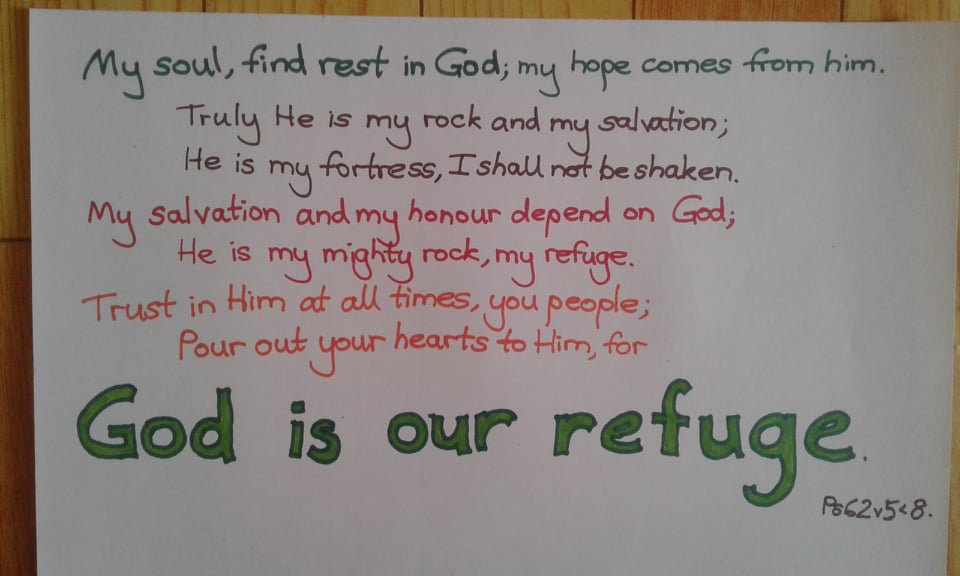 My soul, find rest in God; my hope comes from him.
Truly He is my rock and my salvation;
He is my fortress, I shall not be shaken.
My salvation and my honour depend on God;
He is my mighty rock, my refuge.
Trust in Him at all times, you people;
Pour out your hearts to Him, for
God is our refuge.
Ps62v5<8.